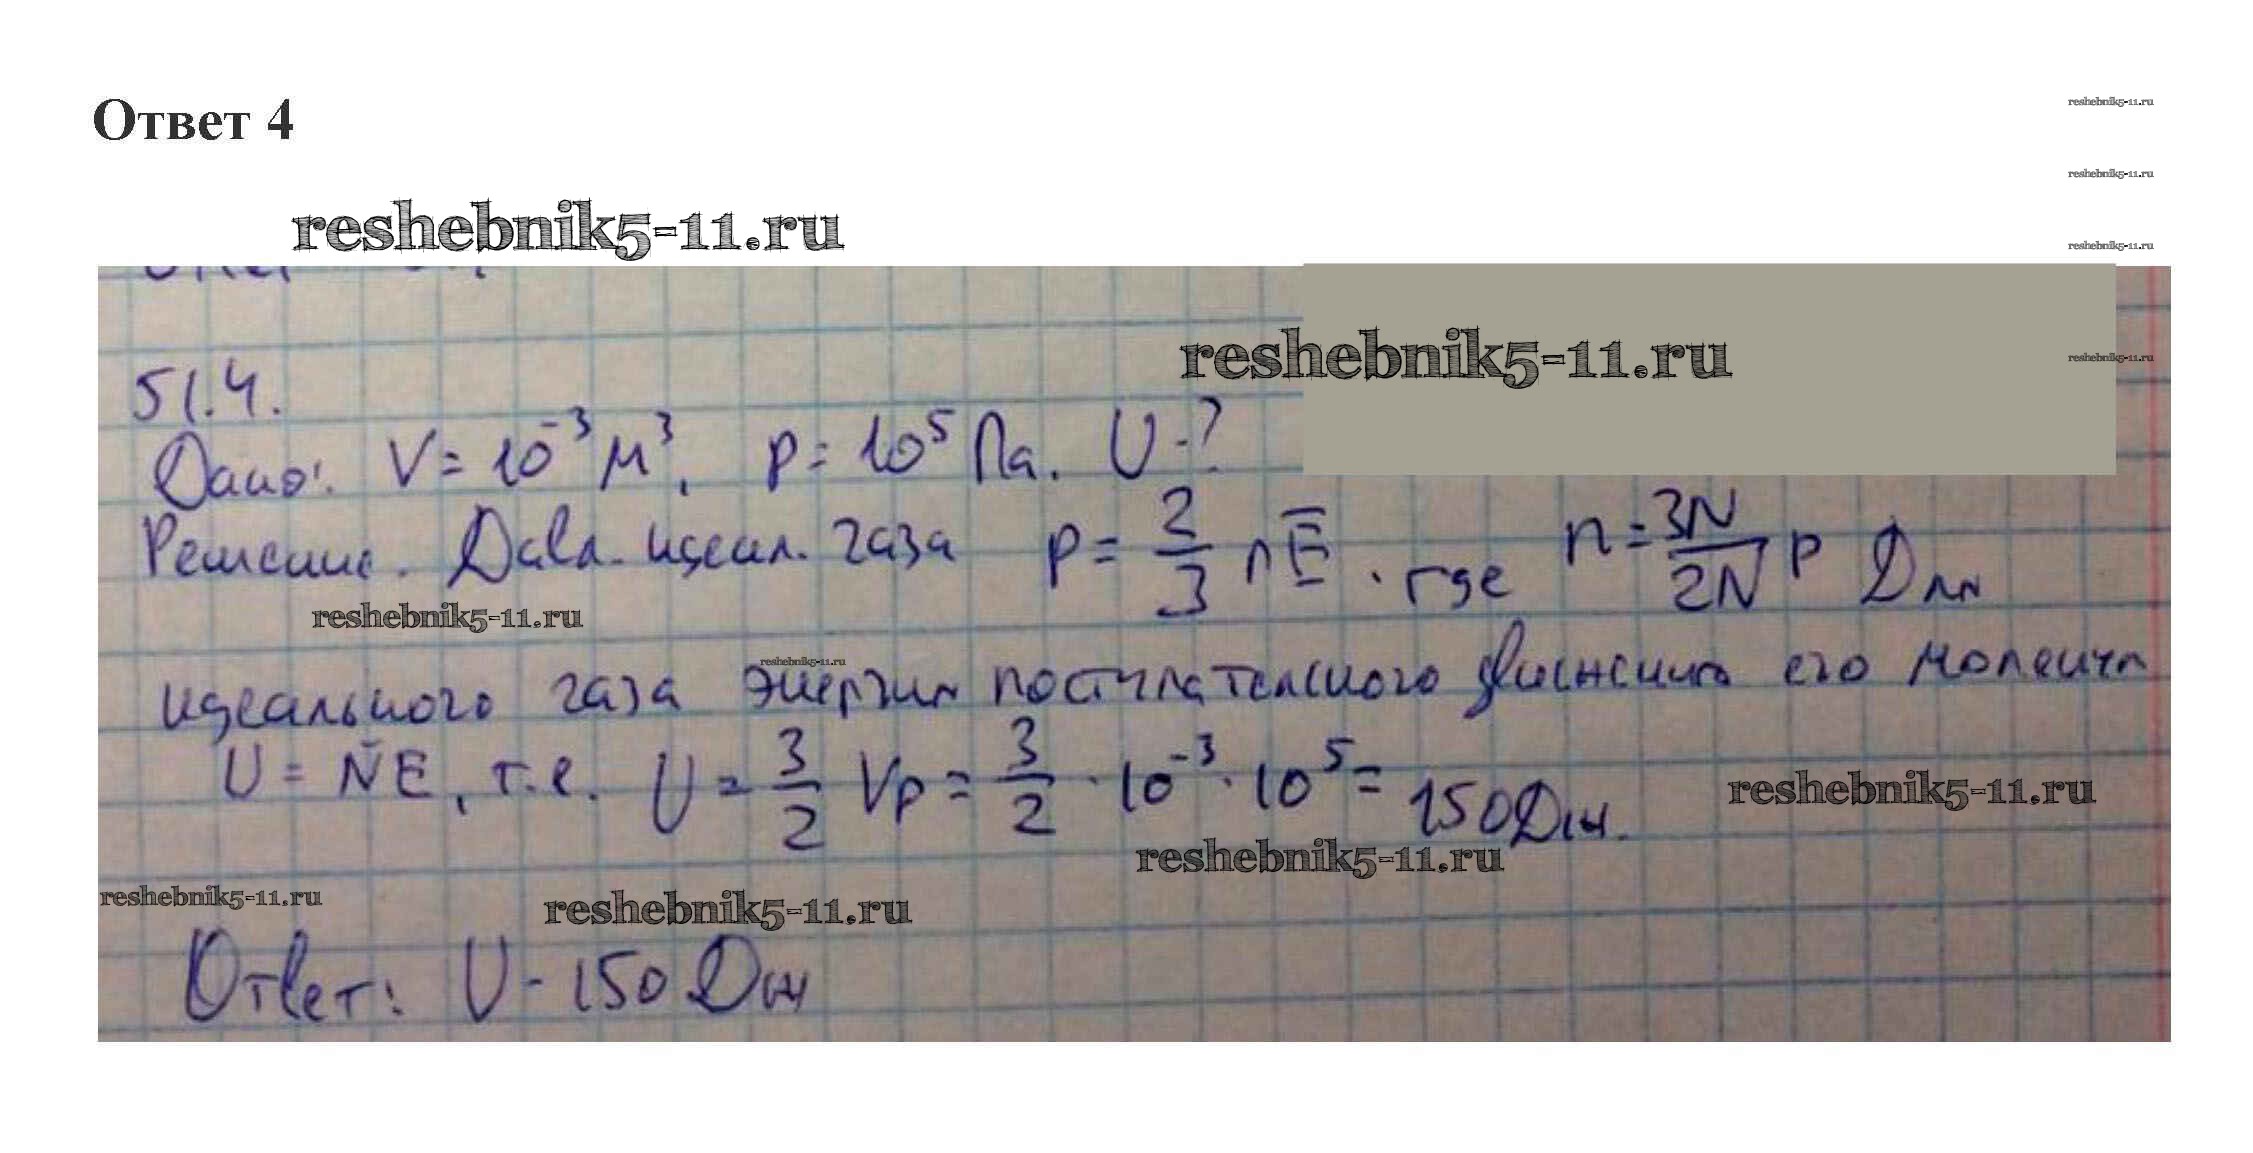 Ответ 4
reshebnik5-11.ru
reshebnik5-11.ru
reshebnik5-11.ru
reshebnik5-11.ru
reshebnik5-11.ru
reshebnik5-11.ru
51.4.
Дано: V = 10⁻³ м³, p = 10⁵ Па. U - ?
Решение. идеал. газа p = 2/3 nE̅. где n = 3N/2N p Для
reshebnik5-11.ru
reshebnik5-11.ru
идеального газа энергия поступательного движения его молекул
U = N̅E, т.е. U = 3/2 Vp = 3/2 · 10⁻³ · 10⁵ = 150 Дж.
reshebnik5-11.ru
reshebnik5-11.ru
reshebnik5-11.ru
reshebnik5-11.ru
Ответ: U - 150 Дж